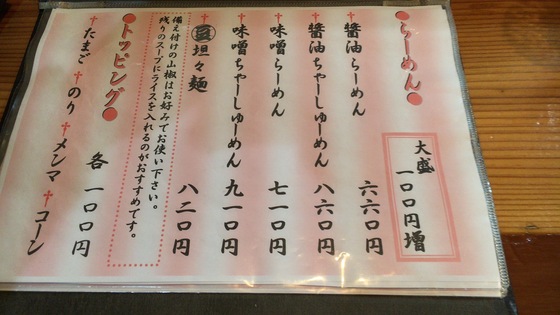 ●らーめん●
大盛
一〇〇円増
醤油らーめん 六六〇円
醤油ちゃーしゅーめん 八六〇円
味噌らーめん 七一〇円
味噌ちゃーしゅーめん 九一〇円
坦々麺 八二〇円
備え付けの山椒はお好みでお使い下さい。
残りのスープにライスを入れるのがおすすめです。
●トッピング●
たまご のり メンマ コーン
各 一〇〇円